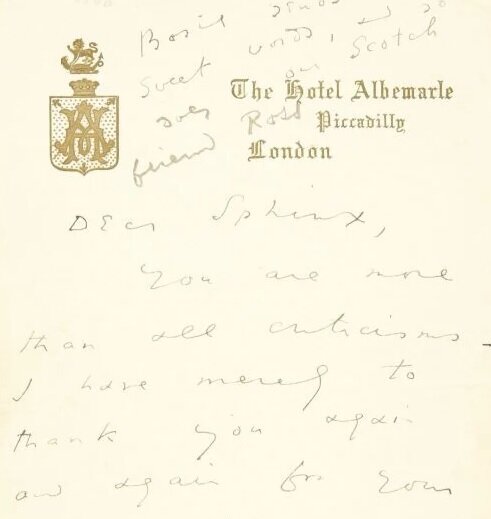 sends so
Sweet words, Scotch
does our
friend Ross
The Hotel Albemarle
Piccadilly
London
Dear Sphinx,
You are more
than all criticisms –
I have merely to
thank you again
and again for your